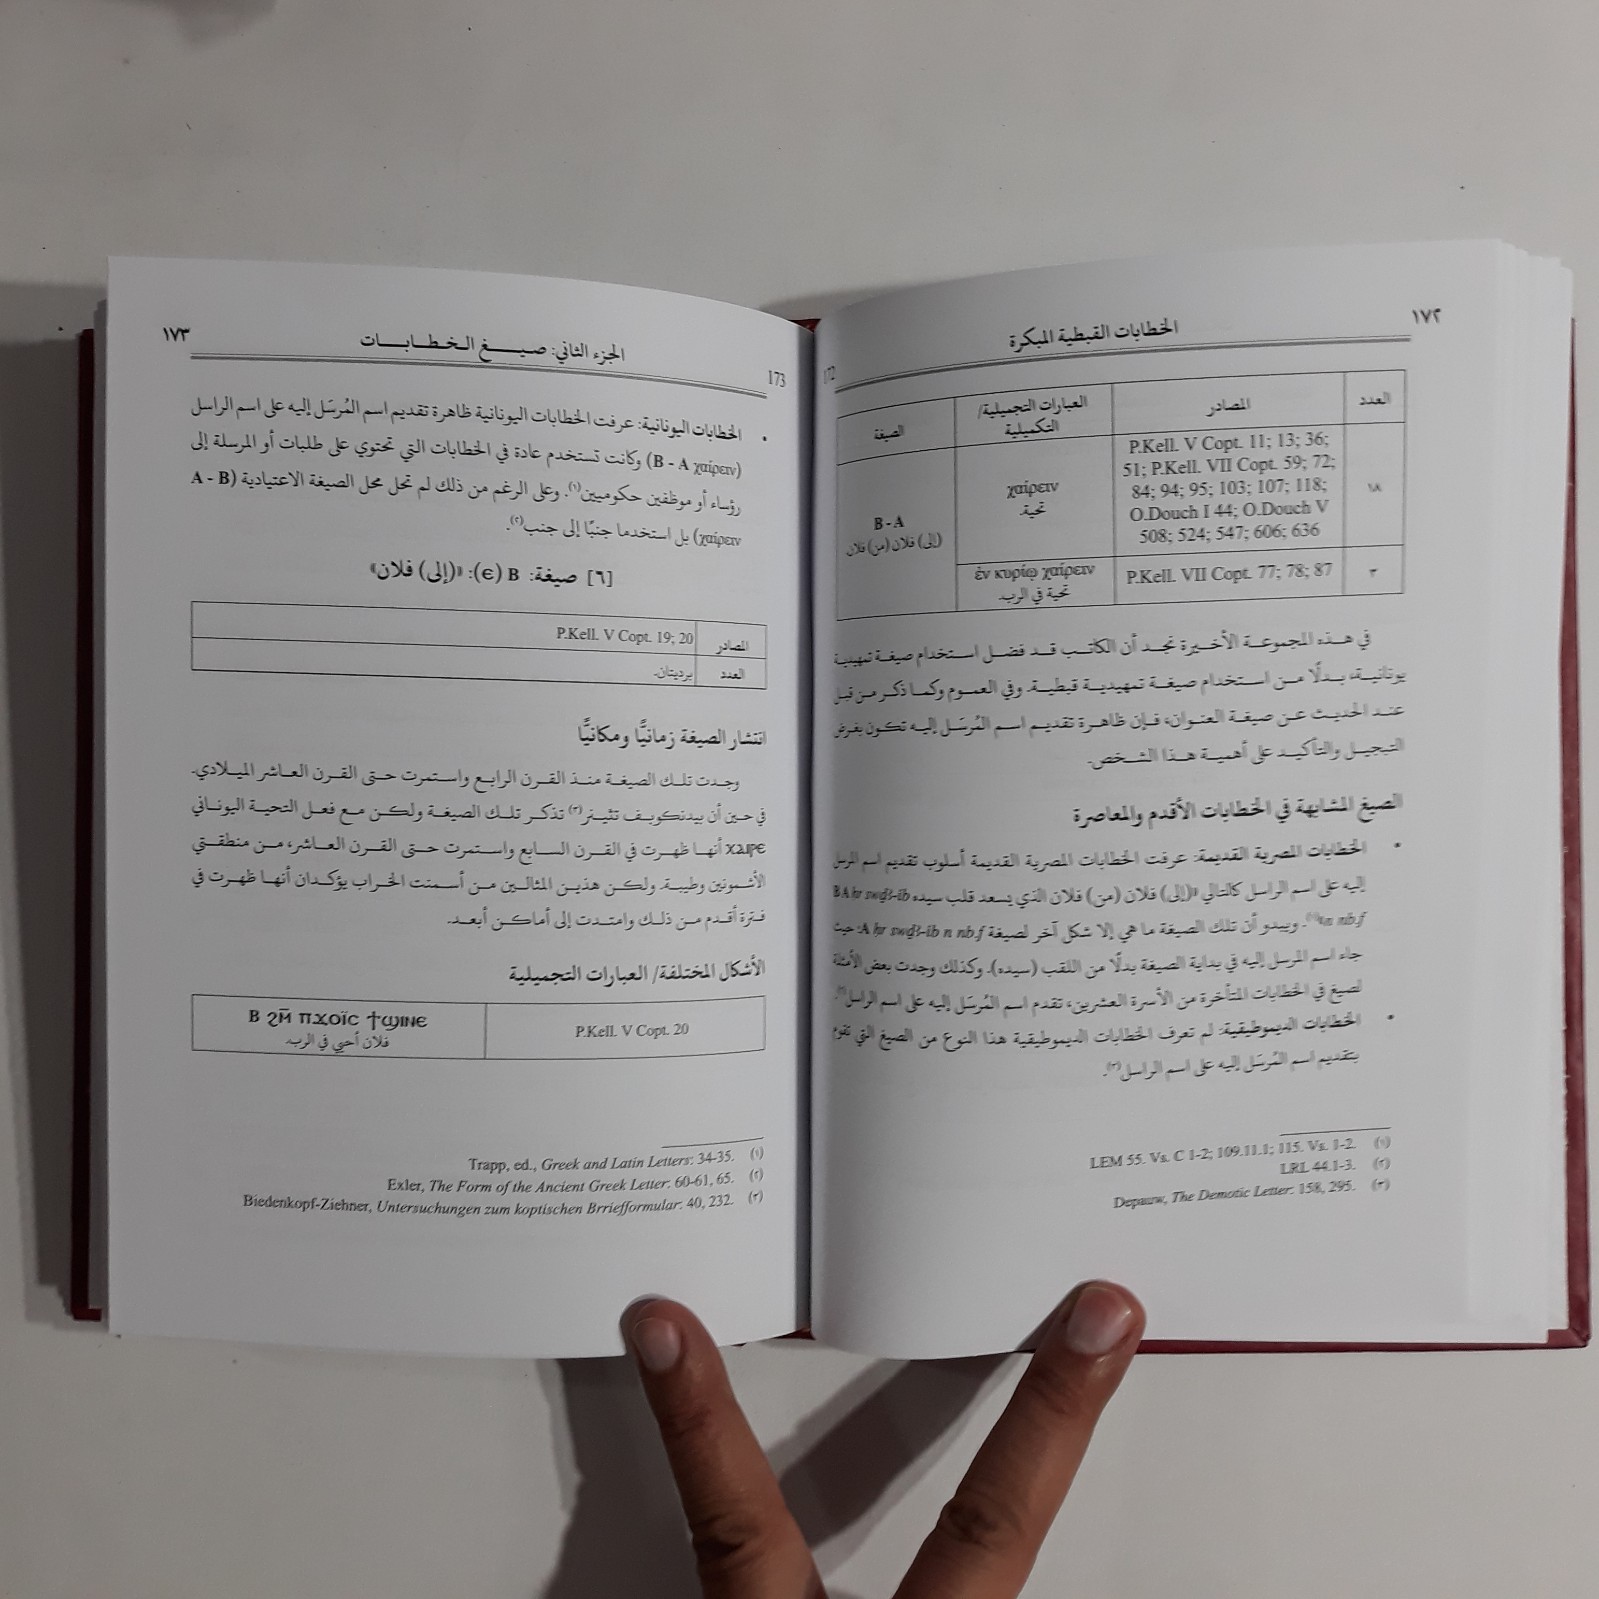 ١٧٢
الخطابات القبطية المبكرة
172
الصيغة
العبارات التجميلية/
التكميلية
المصادر
العدد
B - A
(إلى) فلان (من) فلان.
χαίρειν
تحية.
P.Kell. V Copt. 11; 13; 36;
51; P.Kell. VII Copt. 59; 72;
84; 94; 95; 103; 107; 118;
O.Douch I 44; O.Douch V
508; 524; 547; 606; 636
١٨
ἐν κυρίῳ χαίρειν
تحية في الرب.
P.Kell. VII Copt. 77; 78; 87
٣
في هذه المجموعة الأخيرة نجد أن الكاتب قد فضل استخدام صيغة تمهيدية
يونانية، بدلًا من استخدام صيغة تمهيدية قبطية. وفي العموم وكما ذكر من قبل
عند الحديث عن صيغة العنوان، فإن ظاهرة تقديم اسم المُرسَل إليه تكون بغرض
التبجيل والتأكيد على أهمية هذا الشخص.
الصيغ المشابهة في الخطابات الأقدم والمعاصرة
• الخطابات المصرية القديمة: عرفت الخطابات المصرية القديمة أسلوب تقديم اسم المرسل
إليه على اسم الراسل كالتالي «(إلى) فلان (من) فلان الذي يسعد قلب سيده B A ḥr swḏꜣ-ib
n nb.f»(١). ويبدو أن تلك الصيغة ما هي إلا شكل آخر لصيغة A ḥr swḏꜣ-ib n nb.f؛ حيث
جاء اسم المرسل إليه في بداية الصيغة بدلًا من اللقب (سيده). وكذلك وجدت بعض الأمثلة
لصيغ في الخطابات المتأخرة من الأسرة العشرين، تقدم اسم المُرسَل إليه على اسم الراسل(٢).
• الخطابات الديموطيقية: لم تعرف الخطابات الديموطيقية هذا النوع من الصيغ التي تقوم
بتقديم اسم المُرسَل إليه على اسم الراسل(٣).
(١) LEM 55. Vs. C 1-2; 109.11.1; 115. Vs. 1-2.
(٢) LRL 44.1-3.
(٣) Depauw, The Demotic Letter: 158, 295.
١٧٣
الجزء الثاني: صيـــغ الـخـطـابـــات
173
• الخطابات اليونانية: عرفت الخطابات اليونانية ظاهرة تقديم اسم المُرسَل إليه على اسم الراسل
(B - A χαίρειν) وكانت تستخدم عادة في الخطابات التي تحتوي على طلبات أو المرسلة إلى
رؤساء أو موظفين حكوميين(١). وعلى الرغم من ذلك لم تحل محل الصيغة الاعتيادية (A - B
χαίρειν) بل استخدما جنبًا إلى جنب(٢).
[٦] صيغة: B (ⲉ): «(إلى) فلان»
المصادر P.Kell. V Copt. 19; 20
العدد برديتان.
انتشار الصيغة زمانيًّا ومكانيًّا
وجدت تلك الصيغة منذ القرن الرابع واستمرت حتى القرن العاشر الميلادي.
في حين أن بيدنكوبف تثينر(٣) تذكر تلك الصيغة ولكن مع فعل التحية اليوناني
ⲭⲁⲓⲣⲉ أنها ظهرت في القرن السابع واستمرت حتى القرن العاشر، من منطقتي
الأشمونين وطيبة. ولكن هذين المثالين من أسمنت الخراب يؤكدان أنها ظهرت في
فترة أقدم من ذلك وامتدت إلى أماكن أبعد.
الأشكال المختلفة/ العبارات التجميلية
B ϩⲙ̄ ⲡϫⲟⲓ̈ⲥ ϯϣⲓⲛⲉ
فلان أحيي في الرب.
P.Kell. V Copt. 20
(١) Trapp, ed., Greek and Latin Letters: 34-35.
(٢) Exler, The Form of the Ancient Greek Letter: 60-61, 65.
(٣) Biedenkopf-Ziehner, Untersuchungen zum koptischen Brriefformular: 40, 232.